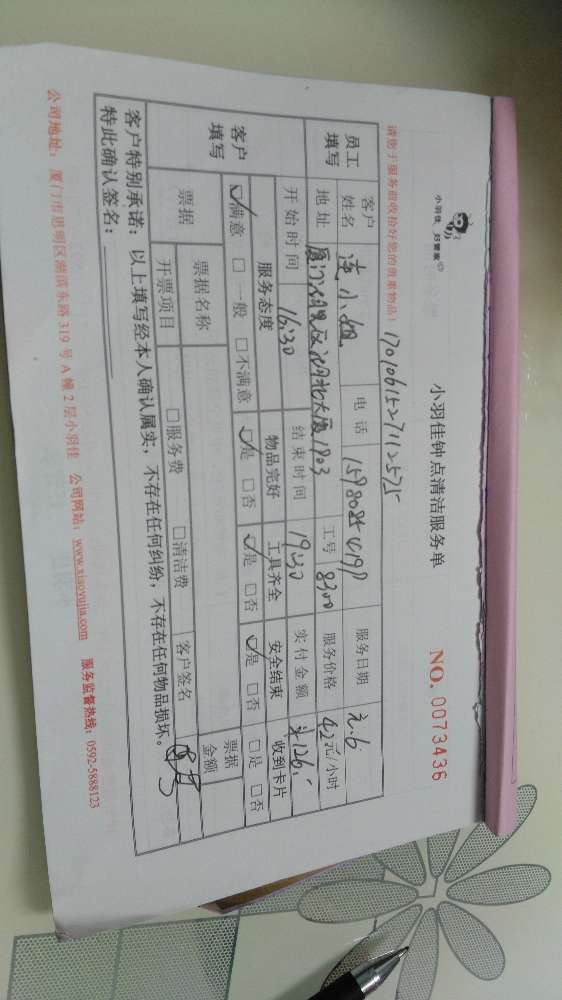 小羽佳 好管家
小羽佳钟点清洁服务单
NO. 0073436
请您于服务前收拾好您的贵重物品!
员工填写 客户姓名 连小姐 电话 服务日期 元.6
地址 工号 8300 服务价格 42元/小时
开始时间 16:30 结束时间 19:30 实付金额 ¥126
客户填写 服务态度 物品完好 工具齐全 安全结束 收到卡片
☑满意 □一般 □不满意 ☑是 □否 ☑是 □否 ☑是 □否 □是 □否
票据 票据名称 票据金额
开票项目 □服务费 □清洁费 客户签名
客户特别承诺:以上填写经本人确认属实,不存在任何纠纷,不存在任何物品损坏。
特此确认签名:
公司地址:厦门市思明区湖滨东路319号A幢2层小羽佳 公司网站:www.xiaoyujia.com 服务监督热线:0592-5888123